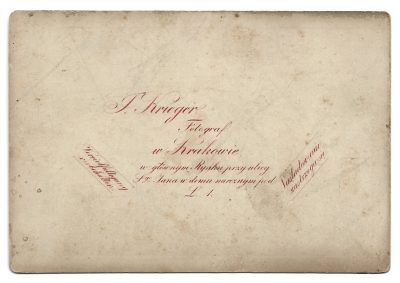 I. Krieger
Fotograf
w Krakowie
w głównym Rynku przy ulicy
Sgo Jana w domu narożnym pod
L. 1.
Naśladowanie
zastrzega się